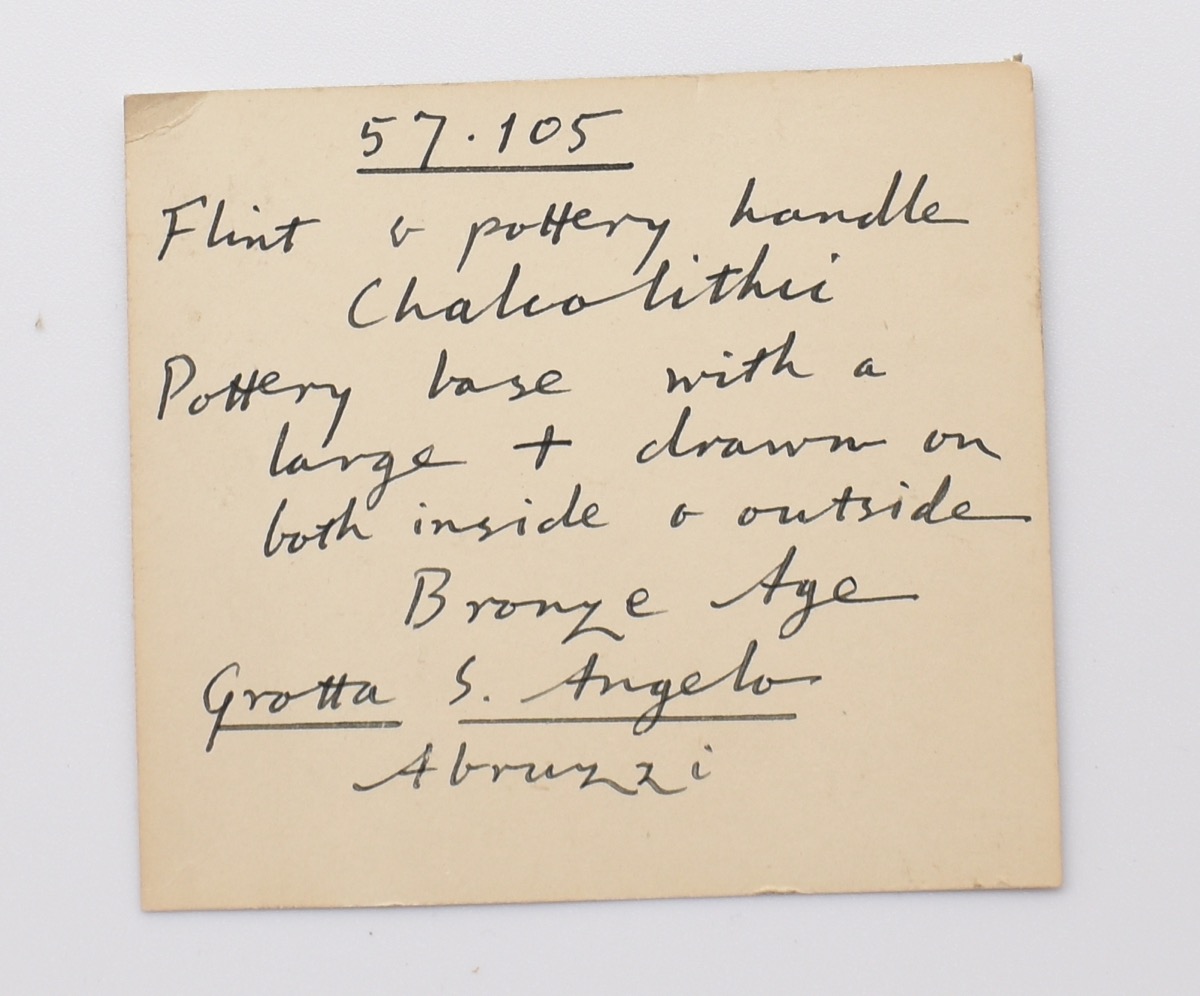 57.105
Flint & pottery handle
Chalcolithic
Pottery base with a
large + drawn on
both inside & outside
Bronze Age
Grotta S. Angelo
Abruzzi